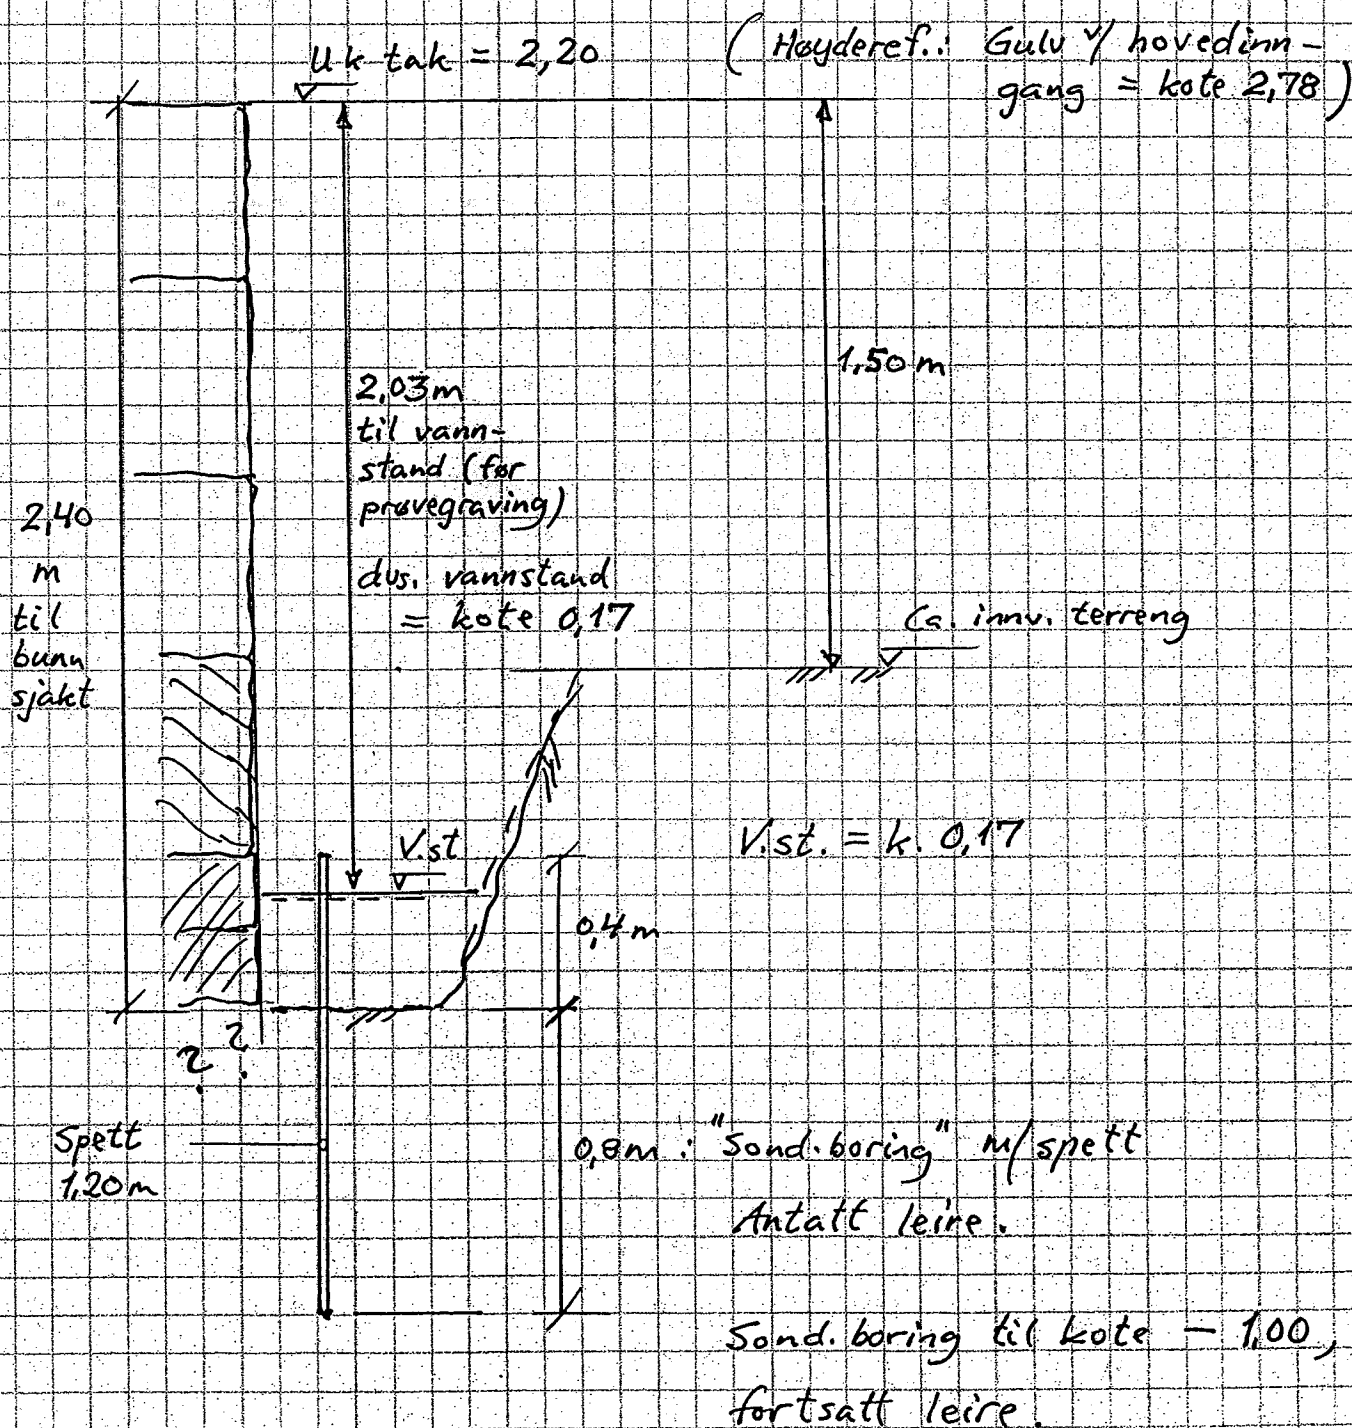 Uk tak = 2,20
( Høyderef.: Gulv v/ hovedinn-
gang = kote 2,78 )
1,50 m
2,03 m
til vann-
stand (før
prøvegraving)
dvs. vannstand
= kote 0,17
2,40
m
til
bunn
sjakt
Ca. innv. terreng
V.st
V.st. = k. 0,17
0,4 m
? ?
Spett
1,20 m
0,8 m : "Sond.boring" m/spett
Antatt leire.
Sond.boring til kote - 1,00,
fortsatt leire.